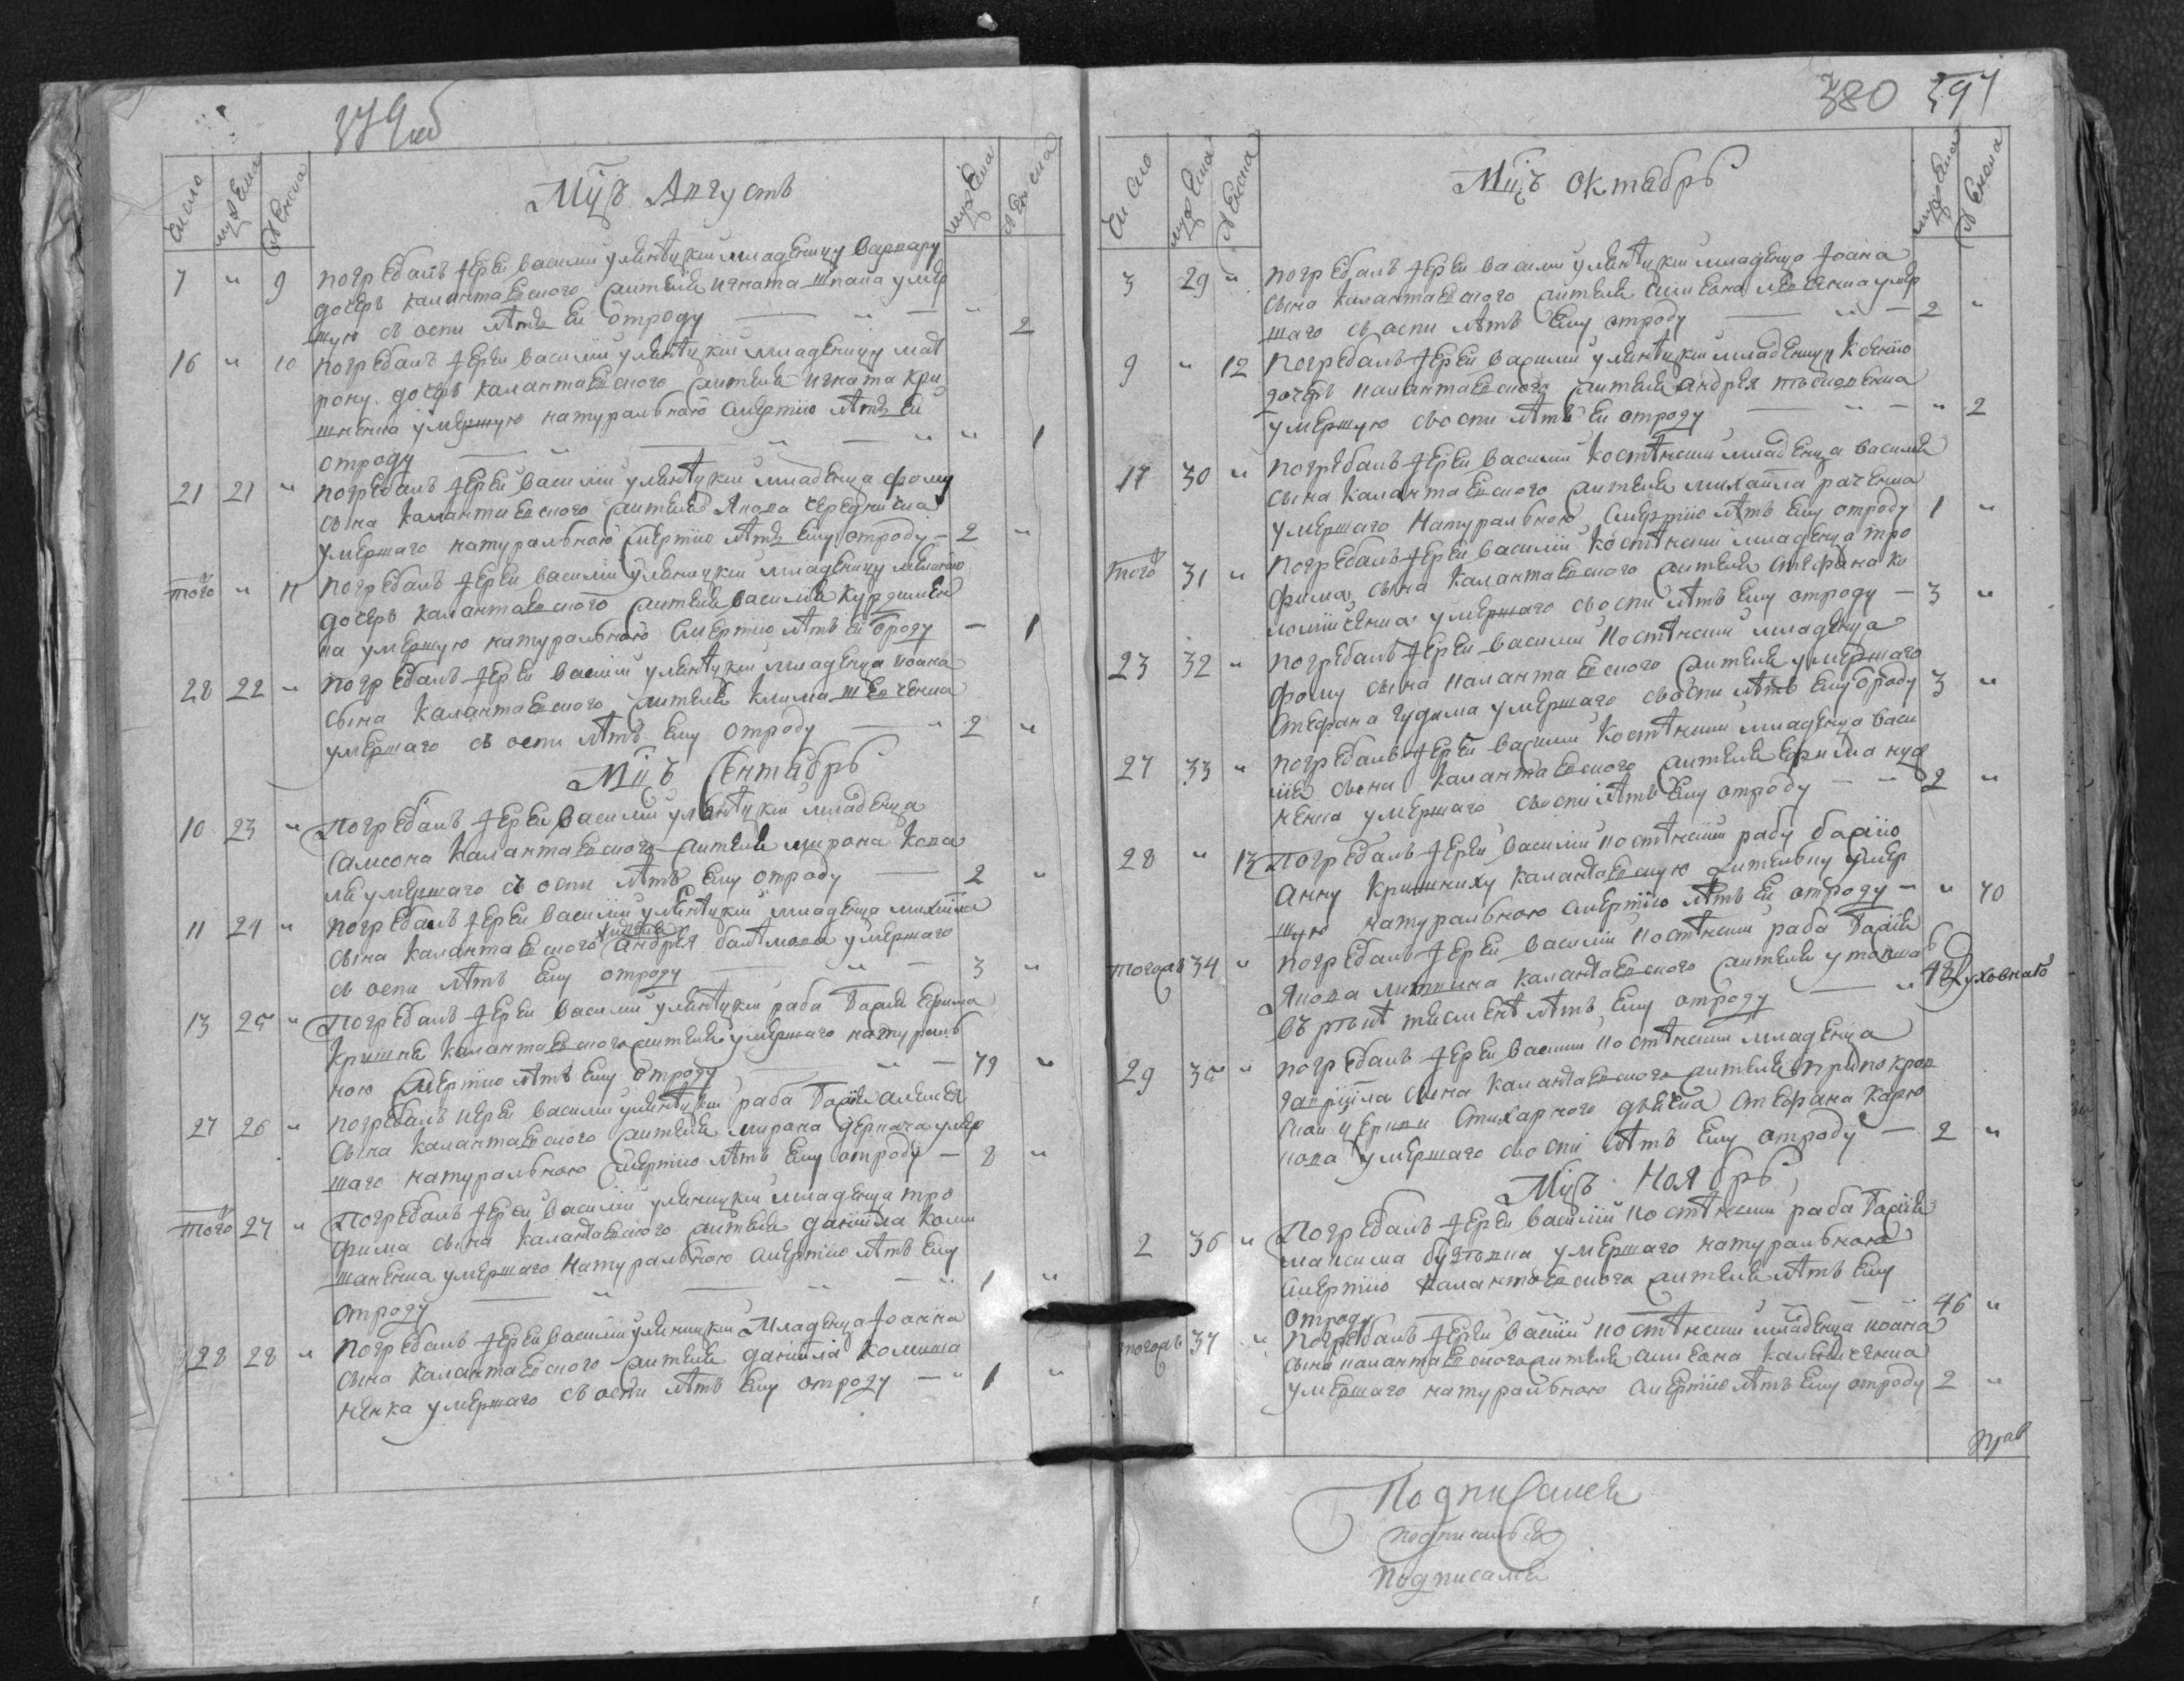 379 об
число мужеска женска
Мц҃ъ Августъ
мужеска женска
7 " 9 погребалъ Іерей василій улѣнѣцкій младеницу варвару
дочерь калантаевского жителя игната шпака умер
шую съ оспи лѣтъ ей отроду — " — " 2
16 " 10 погребалъ Іерей василій улѣнѣцкій младеницу мат
рону дочерь калантаевского жителя игната кри
шненка умершую натуральною смертію лѣтъ ей
отроду — " — " " 1
21 21 " погребалъ Іерей василій улѣнѣцкій младенца фому
сына калантаевского жителя Якова середниченка
умершаго натуральною смертію лѣтъ ему отроду — 2 "
того " 11 погребалъ Іерей василій улѣницкій младеницу
дочерь калантаевского жителя василия
ка умершую натуральною смертію лѣтъ ей ѿроду — 1
28 22 " погребалъ Іерей василій улѣнѣцкій младенца иоана
сына калантаевского жителя клима шевченка
умершаго съ оспи лѣтъ ему отроду — " 2 "
Мц҃ъ Сентябрь
10 23 " Погребалъ Іерей василій улѣнѣцкій младенца
самсона калантаевского жителя мирона кова
ля умершаго съ оспи лѣтъ ему отроду — 2 "
11 24 " погребалъ Іерей василій улѣнѣцкій младенца михаила
жителя
сына калантаевского андрея балѣмова умершаго
съ оспи лѣтъ ему отроду — " — 3 "
13 25 " Погребалъ Іерей василій улѣнѣцкій раба Божія ефима
кришня калантаевского жителя умершаго натураль
ною смертію лѣтъ ему отроду — " — 79 "
27 26 " погребалъ иерей василій улѣнѣцкій раба Божія алексея
сына калантаевского жителя мирона деркача умер
шаго натуральною смертію лѣтъ ему отроду — 8 "
того 27 " Погребалъ Іерей василій улѣницкій младенца тро
фима сына калантаевского жителя даниила коми
шаненка умершаго натуральною смертію лѣтъ ему
отроду — " — " — " 1 "
28 28 " погребалъ Іерей василій улѣницкій младенца Іоанна
сына калантаевского жителя даниила комиша
ненка умершаго съ оспи лѣтъ ему отроду — " 1 "
380 391
число мужеска женска
Мц҃ъ октябрь
мужеска женска
3 29 " погребалъ Іерей василій улѣнѣцкій младенца Іоана
сына калантаевского жителя симеона левченка умер
шаго съ оспи лѣтъ ему отроду — " — 2 "
9 " 12 Погребалъ Іерей василій улѣнѣцкій младеницу Ксенію
дочерь калантаевского жителя андрея
умершую съ оспи лѣтъ ей отроду — " — " 2
17 30 " погребалъ Іерей василій костѣнскій младенца василия
сына калантаевского жителя михаила раченка
умершаго натуральною смертію лѣтъ ему отроду 1 "
того 31 " погребалъ Іерей василій костѣнскій младенца тро
фима сына калантаевского жителя стефана ко
ломійченка умершаго съ оспи лѣтъ ему отроду — 3 "
23 32 " погребалъ Іерей василий костѣнский младенца
фому сына калантаевского жителя умершаго
стефана гудима умершаго съ оспи лѣтъ ему ѿроду 3 "
27 33 " погребалъ Іерей василий костѣнский младенца васи
лия сына калантаевского жителя ефима
ненка умершаго съ оспи лѣтъ ему отроду — " 2 "
28 " 13 Погребалъ Іерей василій костѣнскій рабу божію
анну кришниху калантаевскую жительку умер
шую натуральною смертію лѣтъ ей отроду — " 70
тогожъ 34 " погребалъ Іерей василий костѣнский раба Божія
Якова литвина калантаевского жителя утопша
въ рѣкѣ тясменѣ лѣтъ ему отроду — " 42 духовнаго
29 35 " погребалъ Іерей василий костѣнский младенца
гавріила сына калантаевского жителя при покров
ской церкви стихарного дьячка стефана карпо
кова умершаго съ оспи лѣтъ ему отроду — 2 "
Мц҃ъ Ноябрь
2 36 " Погребалъ Іерей василій костѣнский раба Божія
максима умершаго натуральною
смертію калантаевского жителя лѣтъ ему
отроду — 46 "
тогожъ 37 " погребалъ Іерей василій костѣнский младенца иоана
сына калантаевского жителя симеона
умершаго натуральною смертію лѣтъ ему отроду 2 "
Прав
Подписалея
подписалъся
Подписалея